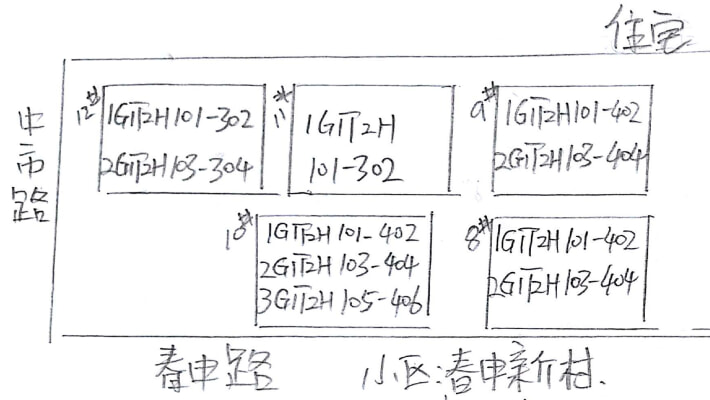 住宅
中市路
12#
1G1T2H101-302
2G1T2H103-304
11#
1G1T2H
101-302
9#
1G1T2H101-402
2G1T2H103-404
10#
1G1T2H101-402
2G1T2H103-404
3G1T2H105-406
8#
1G1T2H101-402
2G1T2H103-404
春申路
小区:春申新村.